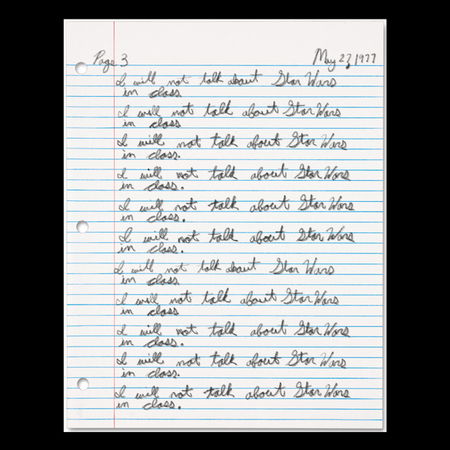 Page 3 May 27, 1977
I will not talk about Star Wars
in class
I will not talk about Star Wars
in class
I will not talk about Star Wars
in class.
I will not talk about Star Wars
in class.
I will not talk about Star Wars
in class.
I will not talk about Star Wars
in class.
I will not talk about Star Wars
in class
I will not talk about Star Wars
in class
I will not talk about Star Wars
in class.
I will not talk about Star Wars
in class.
I will not talk about Star Wars
in class.